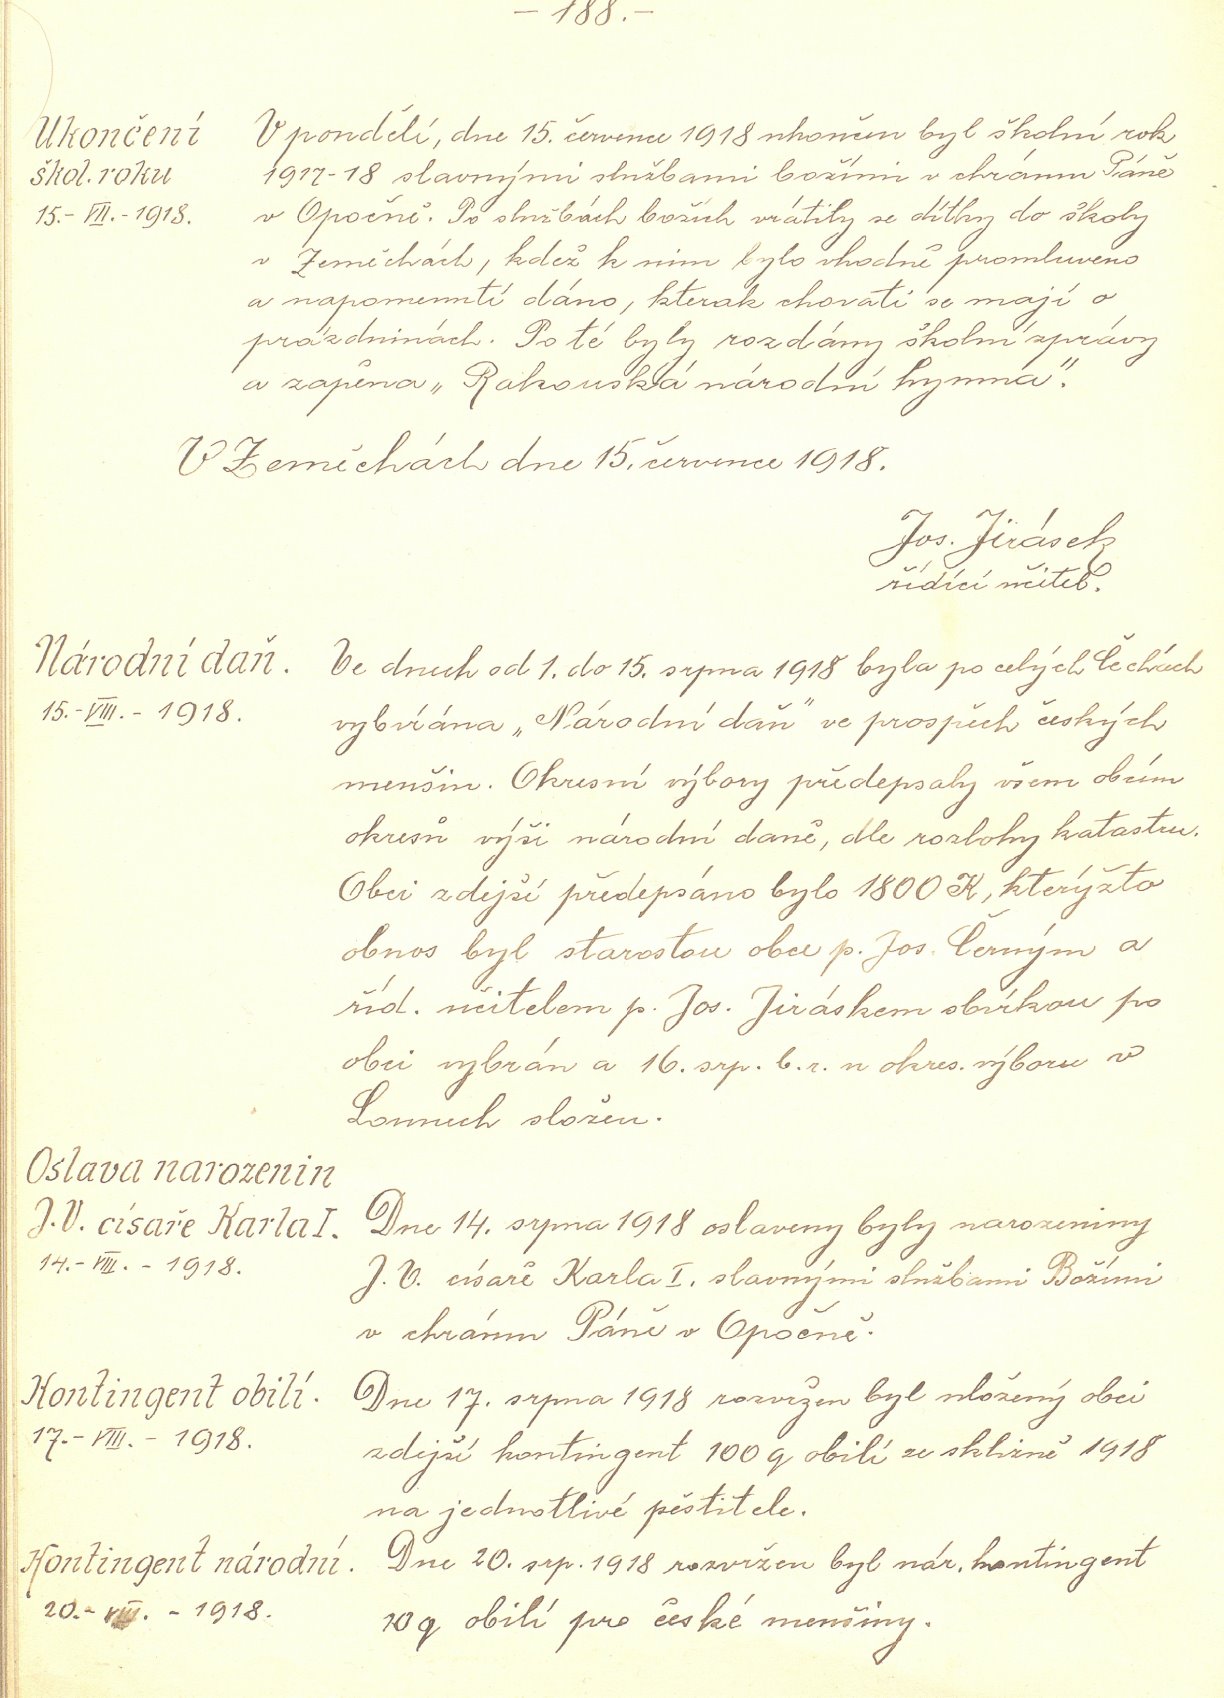 – 188. –
Ukončení
škol. roku
15.- VII. - 1918.
V pondělí, dne 15. července 1918 ukončen byl školní rok
1917-18 slavnými službami božími v chrámu Páně
v Opočně. Po službách božích vrátily se dítky do školy
v Zeměchách, kdež k nim bylo vhodně promluveno
a napomenutí dáno, kterak chovati se mají o
prázdninách. Po té byly rozdány školní zprávy
a zapěna „Rakouská národní hymna".
V Zeměchách dne 15. července 1918.
Jos. Jirásek
řídící učitel.
Národní daň.
15.- VIII. - 1918.
Ve dnech od 1. do 15. srpna 1918 byla po celých Čechách
vybírána „Národní daň" ve prospěch českých
menšin. Okresní výbory předepsaly všem obcím
okresů výši národní daně, dle rozlohy katastru.
Obci zdejší předepsáno bylo 1800 K, kterýžto
obnos byl starostou obce p. Jos. Černým a
říd. učitelem p. Jos. Jiráskem sbírkou po
obci vybrán a 16. srp. b. r. u okres. výboru v
Lounech složen.
Oslava narozenin
J. V. císaře Karla I.
14.- VIII. - 1918.
Dne 14. srpna 1918 oslaveny byly narozeniny
J. V. císaře Karla I. slavnými službami Božími
v chrámu Páně v Opočně.
Kontingent obilí.
17.- VIII. - 1918.
Dne 17. srpna 1918 rozvržen byl uložený obci
zdejší kontingent 100 q obilí ze sklizně 1918
na jednotlivé pěstitele.
Kontingent národní.
20.- VIII. - 1918.
Dne 20. srp. 1918 rozvržen byl nár. kontingent
10 q obilí pro české menšiny.